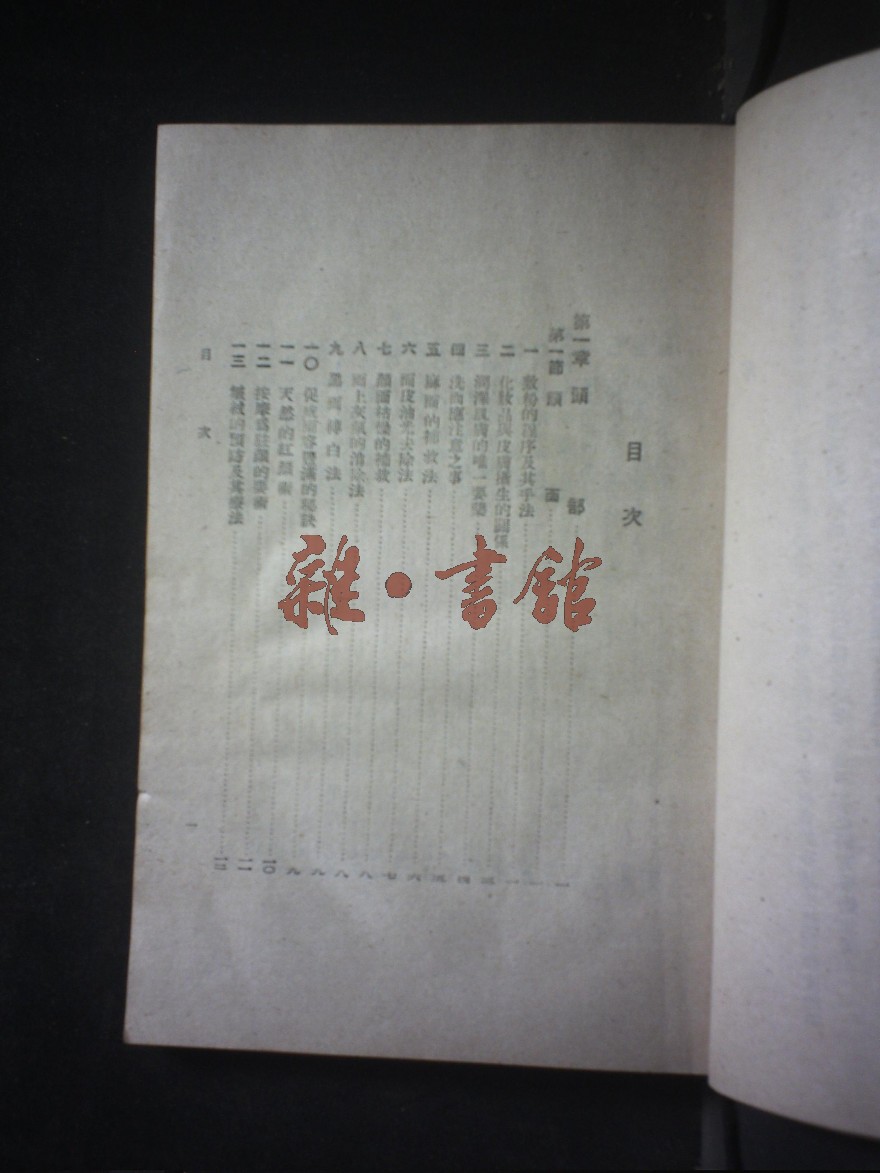 目次
第一章 頭部……一
第一節 顏面……一
一 敷粉的程序及其手法……一
二 化妝品與皮膚攝生的關係……一
三 潤澤肌膚的唯一要藥……三
四 洗面應注意之事……四
五 麻面的補救法……五
六 面皮油光去除法……六
七 顏面枯燥的補救……七
八 面上灰氣的消除法……八
九 黑病轉白法……八
一〇 促成面容豐滿的秘訣……九
一一 天然的紅顏術……九
一二 按摩為駐顏的要術……一〇
一三 皺紋的預防及其療法
目次
一
雜·書館